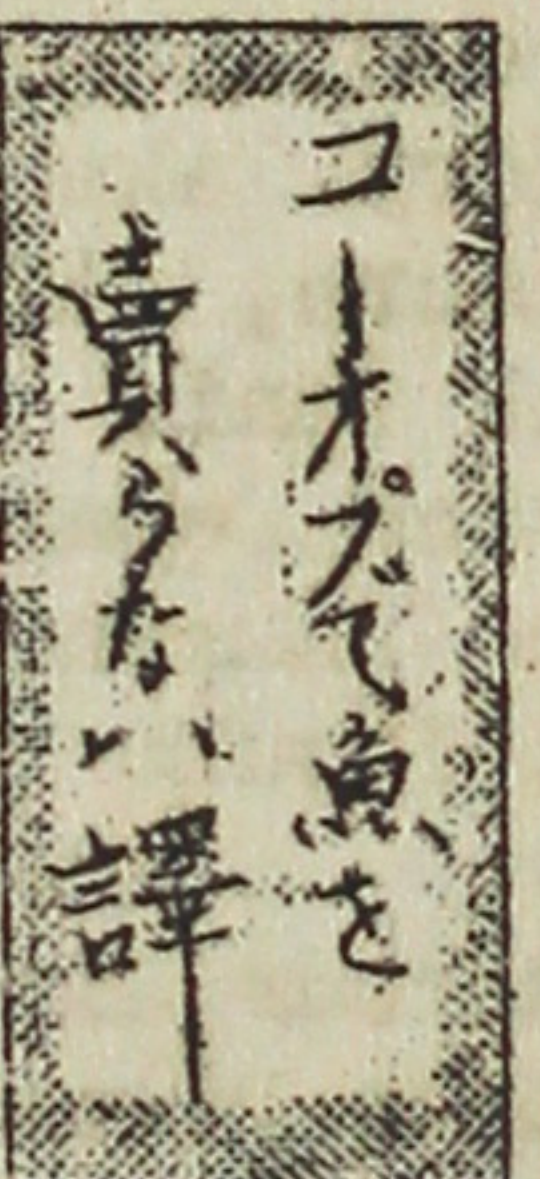 コーオプで魚を
賣らない譯